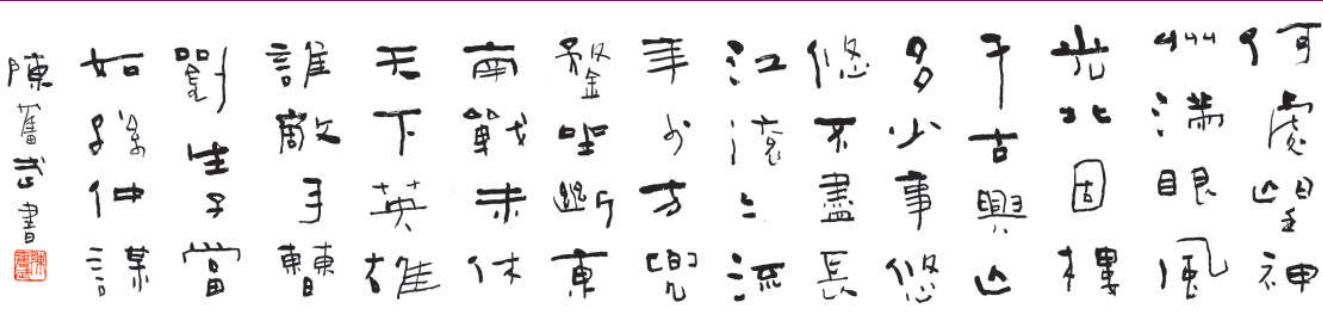 何處望神
州滿眼風
光北固樓
千古興亡
多少事悠
悠不盡長
江滾〻流
年少万兜
鍪坐斷東
南戰未休
天下英雄
誰敵手曹
劉生子當
如孫仲謀
陳奮武書